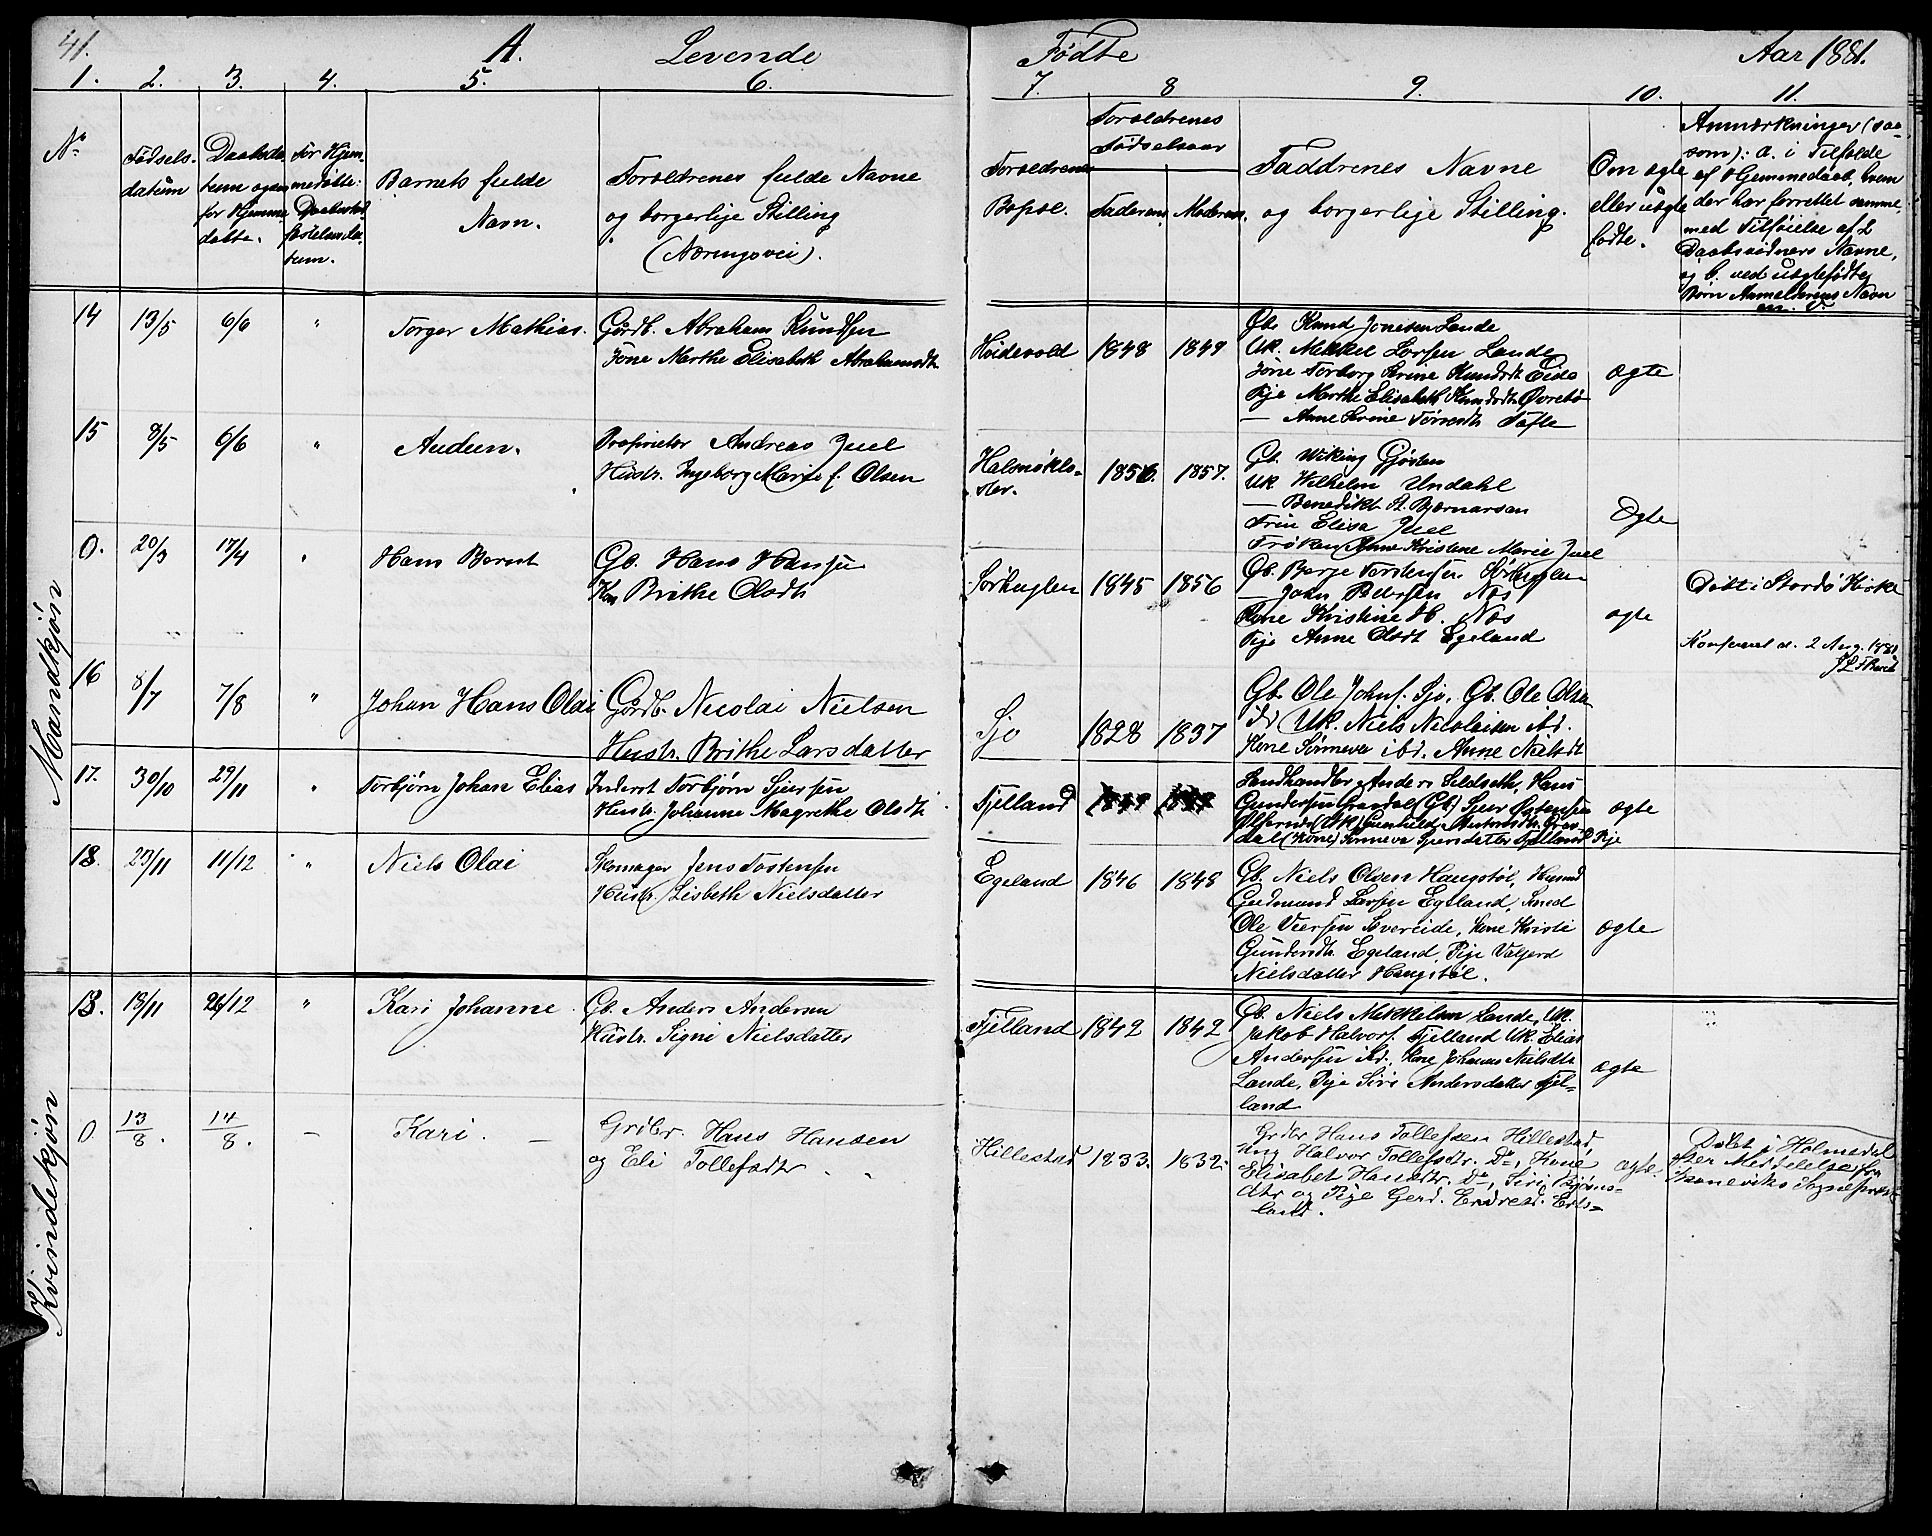 41.
A.
Levende
Fødte
Aar 1881.
1. 2. 3. 4. 5. 6. 7. 8 9. 10. 11.
No
Fødsels-
datum
Daabsda-
tum ogsaa
for Hjemme
døbte.
For Hjem-
medøbte:
Daabens Stad
fæstelses da-
tum.
Barnets fulde
Navn.
Forældrenes fulde Navne
og borgerlige Stilling
(Næringsvei).
Forældrenes
Bopæl.
Forældrenes
Fødselsaar
Faderens Moderens.
Faddrenes Navne
og borgerlige Stilling.
Om ægte
eller uægte
fødte.
Anmærkninger (saa-
som): a. i Tilfælde
af Hjemmedaab, hvem
der har forrettet samme,
med Tilføielse af 2
Daabsvidners Navne,
og b. ved uægtefødte
Børn Anmelderens Navn
m. V.
Mandkjøn
14 13/5 6/6 " Torger Mathias.
Gårdb. Abraham Knudsen
Kone Marthe Elisabeth Abrahamsdt.
Hvidevold 1848 1849
Gb. Knud Jonesen Lande
Uk. Mikkel Larsen Lande
Kone Torborg Serine Knudsdt Eide
Pige Marthe Elisabeth Knudsdt. Øvrebø
— Anne Serine Tørresdt. Tofte
ægte
15 8/5 6/6 " Audun.
Proprietør Andreas Juel
Hustr. Ingeborg Marie f. Olsen
Halsnøklo-
ster. 1856. 1857.
Gb. Wiking Gjøsten
Uk Wilhelm Undahl
— Benedikt A. Bjørnarsen
Fru Elisa Juel
Frøken Anne Kristine Marie Juel
Ægte
0. 20/3 17/4 " Hans Bernt
Gb. Hans Hansen
Kone Brithe Olsdt.
Sørhuglen 1845 1856
Gb. Børje Torstensen Sørhuglen
— John Pedersen Næs
Kone Kristine H. Næs
Pige Anne Olsdt Egeland
ægte
Døbt i Stordø Kirke
Konfereret d. 2 Aug. 1881
16 8/7 7/8 " Johan Hans Olai
Gårdb. Nicolai Nielsen
Hustr. Brithe Larsdatter
Sjo 1828 1837
Gb. Ole Johns. Sjo, Gb. Ole Olsen
ibd Uk. Niels Nicolaisen ibd.
Kone Sønneva ibd. Anne Nielsdt
17. 30/10 29/11 " Torbjørn Johan Elias
Inderst Torbjørn Sjursen
Hustr. Johanne Magrethe Olsdt.
Fjelland 1849
Landhandler Anders Seldseth, Hans
Gundersen Gravdal (Gb) Sjur Østensen
(Uk) Gunhild Antonsdtr. Grav-
dal (Kone) Sønneva Sjursdatter Fjelland Pige
ægte
18. 23/11 11/12 " Niels Olai
Skomager Jens Tostensen
Hustr. Lisbeth Nielsdatter
Egeland 1846 1848
Gb. Niels Olsen Haugstøl, Husmd
Gudmund Larsen Egeland, Smed
Ole Veersen Severeide, Kone Kristi
Gundersdt. Egeland, Pige Valgerd
Nielsdatter Haugstøl.
ægte
Kvindekjøn
18. 18/11 26/12 " Kari Johanne
Gb. Anders Andersen
Hustr. Signi Nielsdatter
Fjelland 1842 1842
Gb. Niels Mikkelsen Lande, Uk.
Jakob Halvors. Fjelland Uk. Elias
Andersen ibd., Kone Johanne Nielsdt.
Lande, Pige Siri Andersdatter Fjel-
land
ægte
0. 13/8. 14/8. — Kari. —
Grdbr. Hans Hansen
og Eli Tollefsdtr.
Hillestad 1833. 1832.
Grdbr Hans Tollefsen Hillestad
Ung Halvor Tollefsdtr. Do, Kone
Elisabet Hansdtr. Do, Siri Bjørns-
dtr og Pige Gerd. Endresd. Ers-
land.
ægte.
Døbt i Holmedal
efter Meddelelse fra
Skaneviks Sognepræst